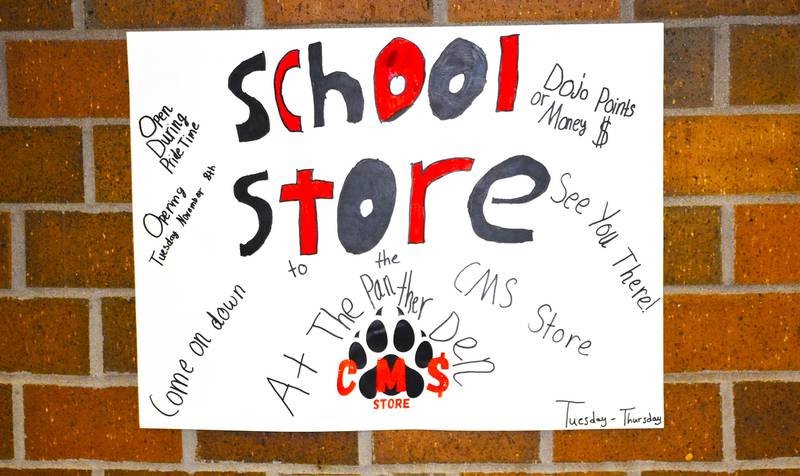 School
Store
Open
During
Pride Time
Opening
Tuesday November 8th
Dojo Points
or Money $
See You There!
Come on down
to the
CMS Store
At The Panther Den
CM$
STORE
Tuesday - Thursday